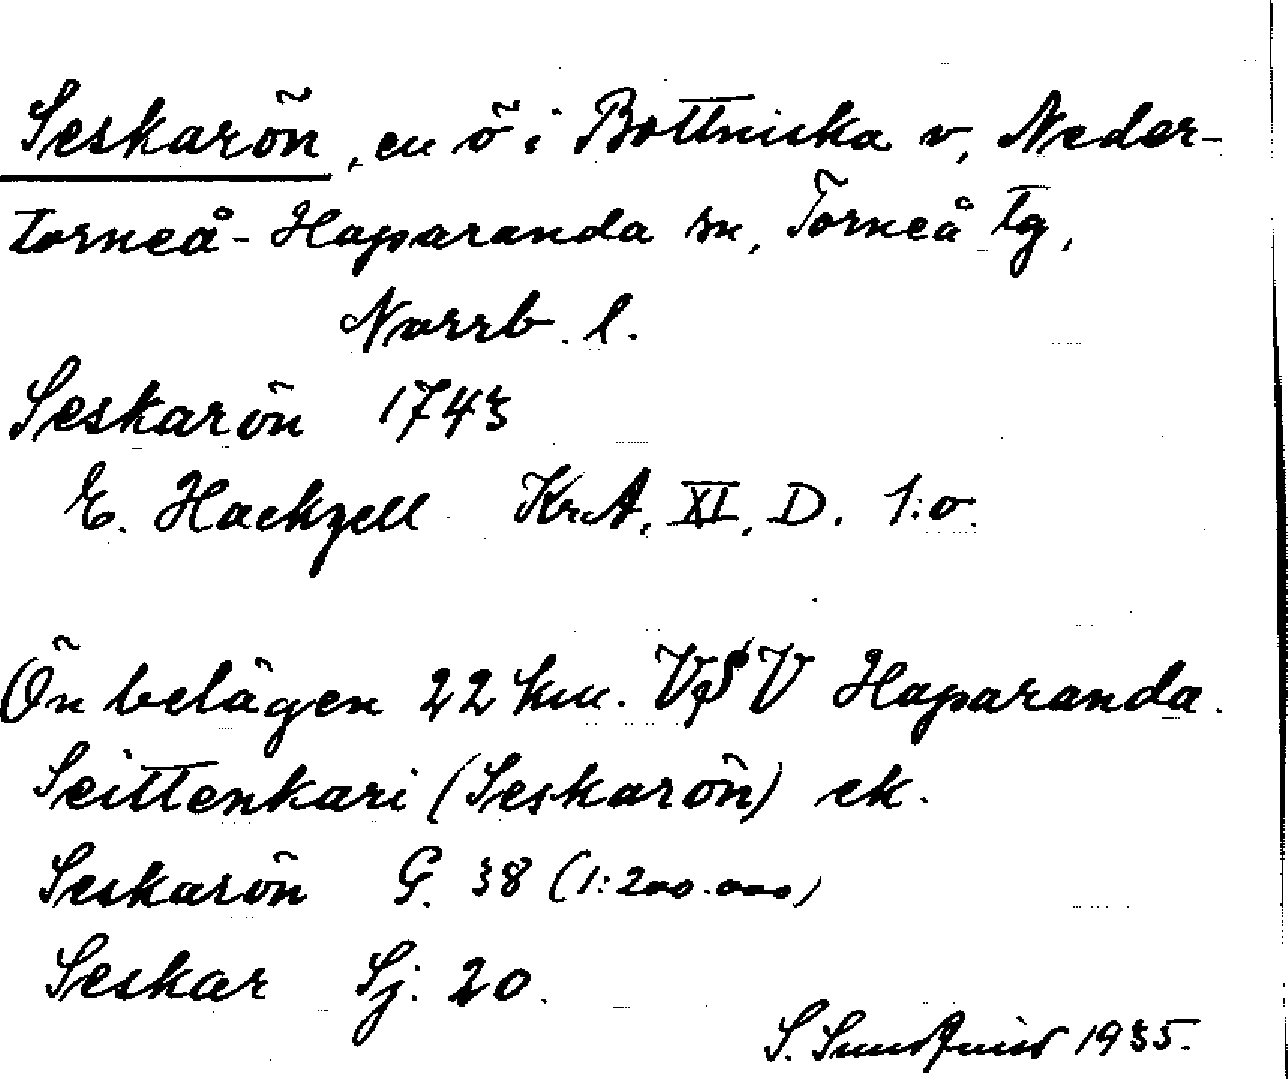 Seskarön, en ö i Bottniska v, Neder-
torneå-Haparanda sn, Torneå tg,
Norrb. l.
Seskarön 1743
E. Hackzell Kr.A. XI. D. 1:o.
Ön belägen 22 km. VSV Haparanda.
Seittenkari (Seskarön) ek.
Seskarön G. 38 (1:200.000)
Seskar Sj. 20.
S. Sundquist 1935.